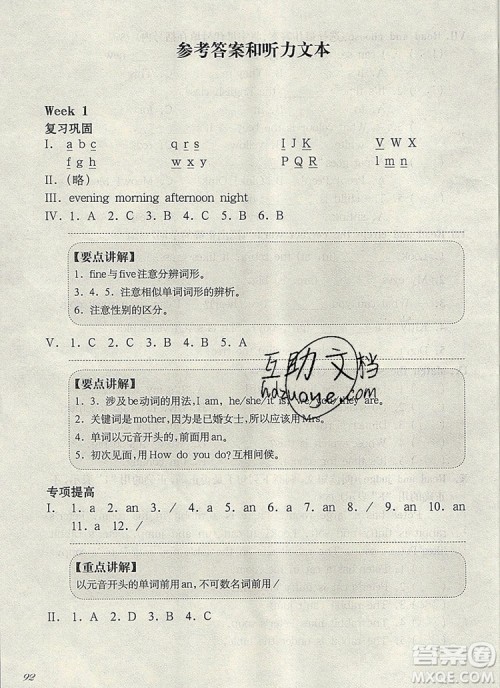 参考答案和听力文本
Week 1
复习巩固
I. a b c q r s I J K U V W
f g h w x y P Q R l m n
II.（略）
III. evening morning afternoon night
IV. 1. A 2. C 3. B 4. C 5. B 6. B
【要点讲解】
1. fine与five注意分辨词形。
3. 4. 5. 注意相似单词词形的辨析。
6. 注意性别的区分。
V. 1. B 2. B 3. C 4. B 5. A
【要点讲解】
1. 3. 涉及be动词的用法，I am，he/she/it is，we/you/they are。
2. 关键词是mother，因为是已婚女士，所以应该用Mrs。
4. 单词以元音开头的，前面用an。
5. 初次见面，用How do you do?互相问候。
专项提高
I. 1. a 2. an 3. / 4. a 5. a 6. an 7. / 8. an 9. a 10. an
11. a 12. an 13. / 14. / 15. an
【重点讲解】
以元音开头的单词前用an，不可数名词前用/
II. 1. A 2. C 3. B 4. C
92
互助文档
hdzuoye.com
答案圈
MXQE.COM